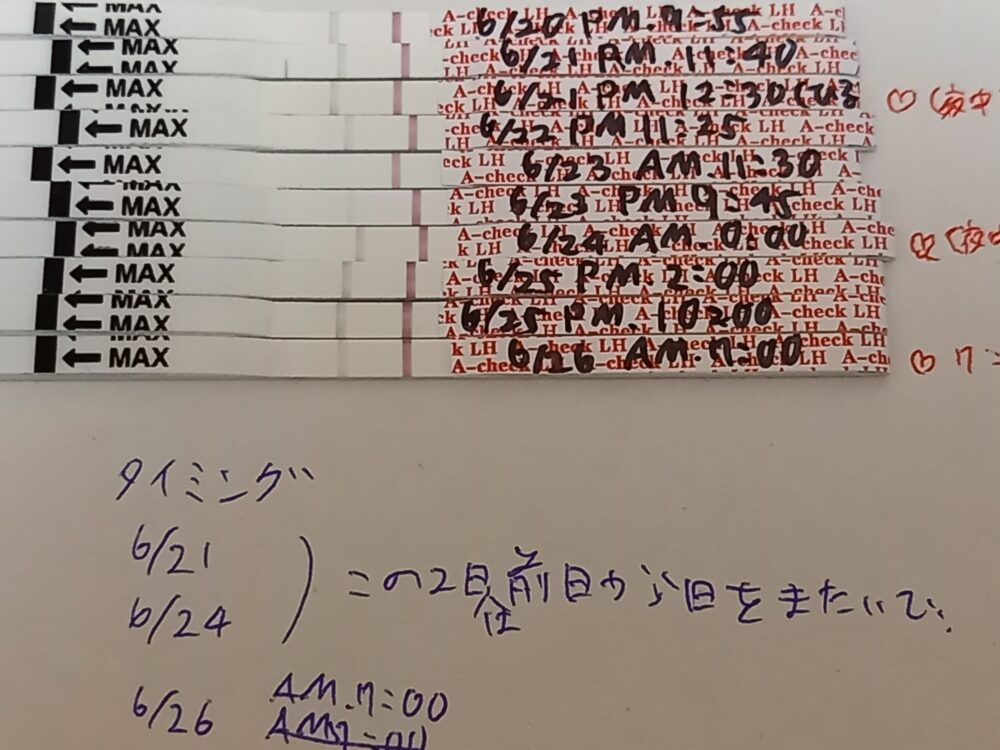 MAX A-check LH 6/20 PM.9:55
MAX A-check LH 6/21 PM.11:40
MAX A-check LH 6/21 PM 12:30 ♡(夜中
MAX A-check LH 6/22 PM 11:25
MAX A-check LH 6/23 AM.11:30
MAX A-check LH 6/23 PM 9:45
MAX A-check LH 6/24 AM.0:00 ♡(夜中
MAX A-check LH 6/25 PM.2:00
MAX A-check LH 6/25 PM.10:00
MAX A-check LH 6/26 AM.7:00 ♡ 7:
タイミング
6/21
6/24
=この2日前日から日をまたいで、
6/26 AM.7:00